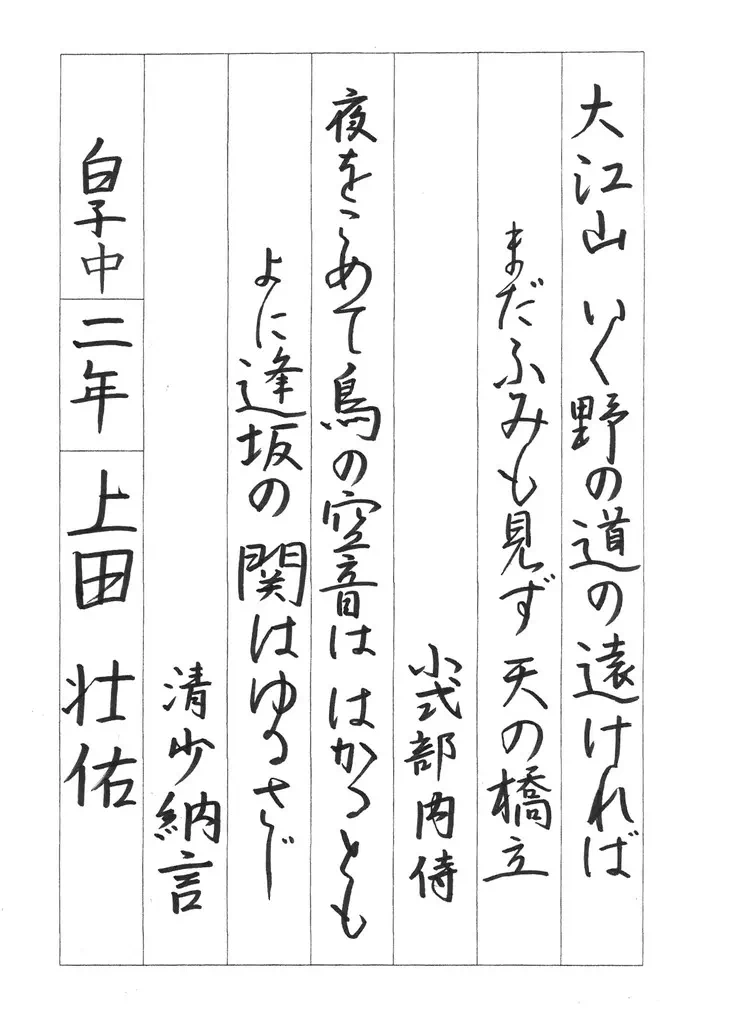 大江山 いく野の道の遠ければ
まだふみも見ず 天の橋立
小式部内侍
夜をこめて鳥の空音は はかるとも
よに逢坂の 関はゆるさじ
清少納言
白子中 二年 上田 壮佑